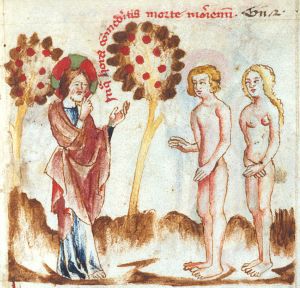 hora comeditis morte moriemini. Gn. 2.